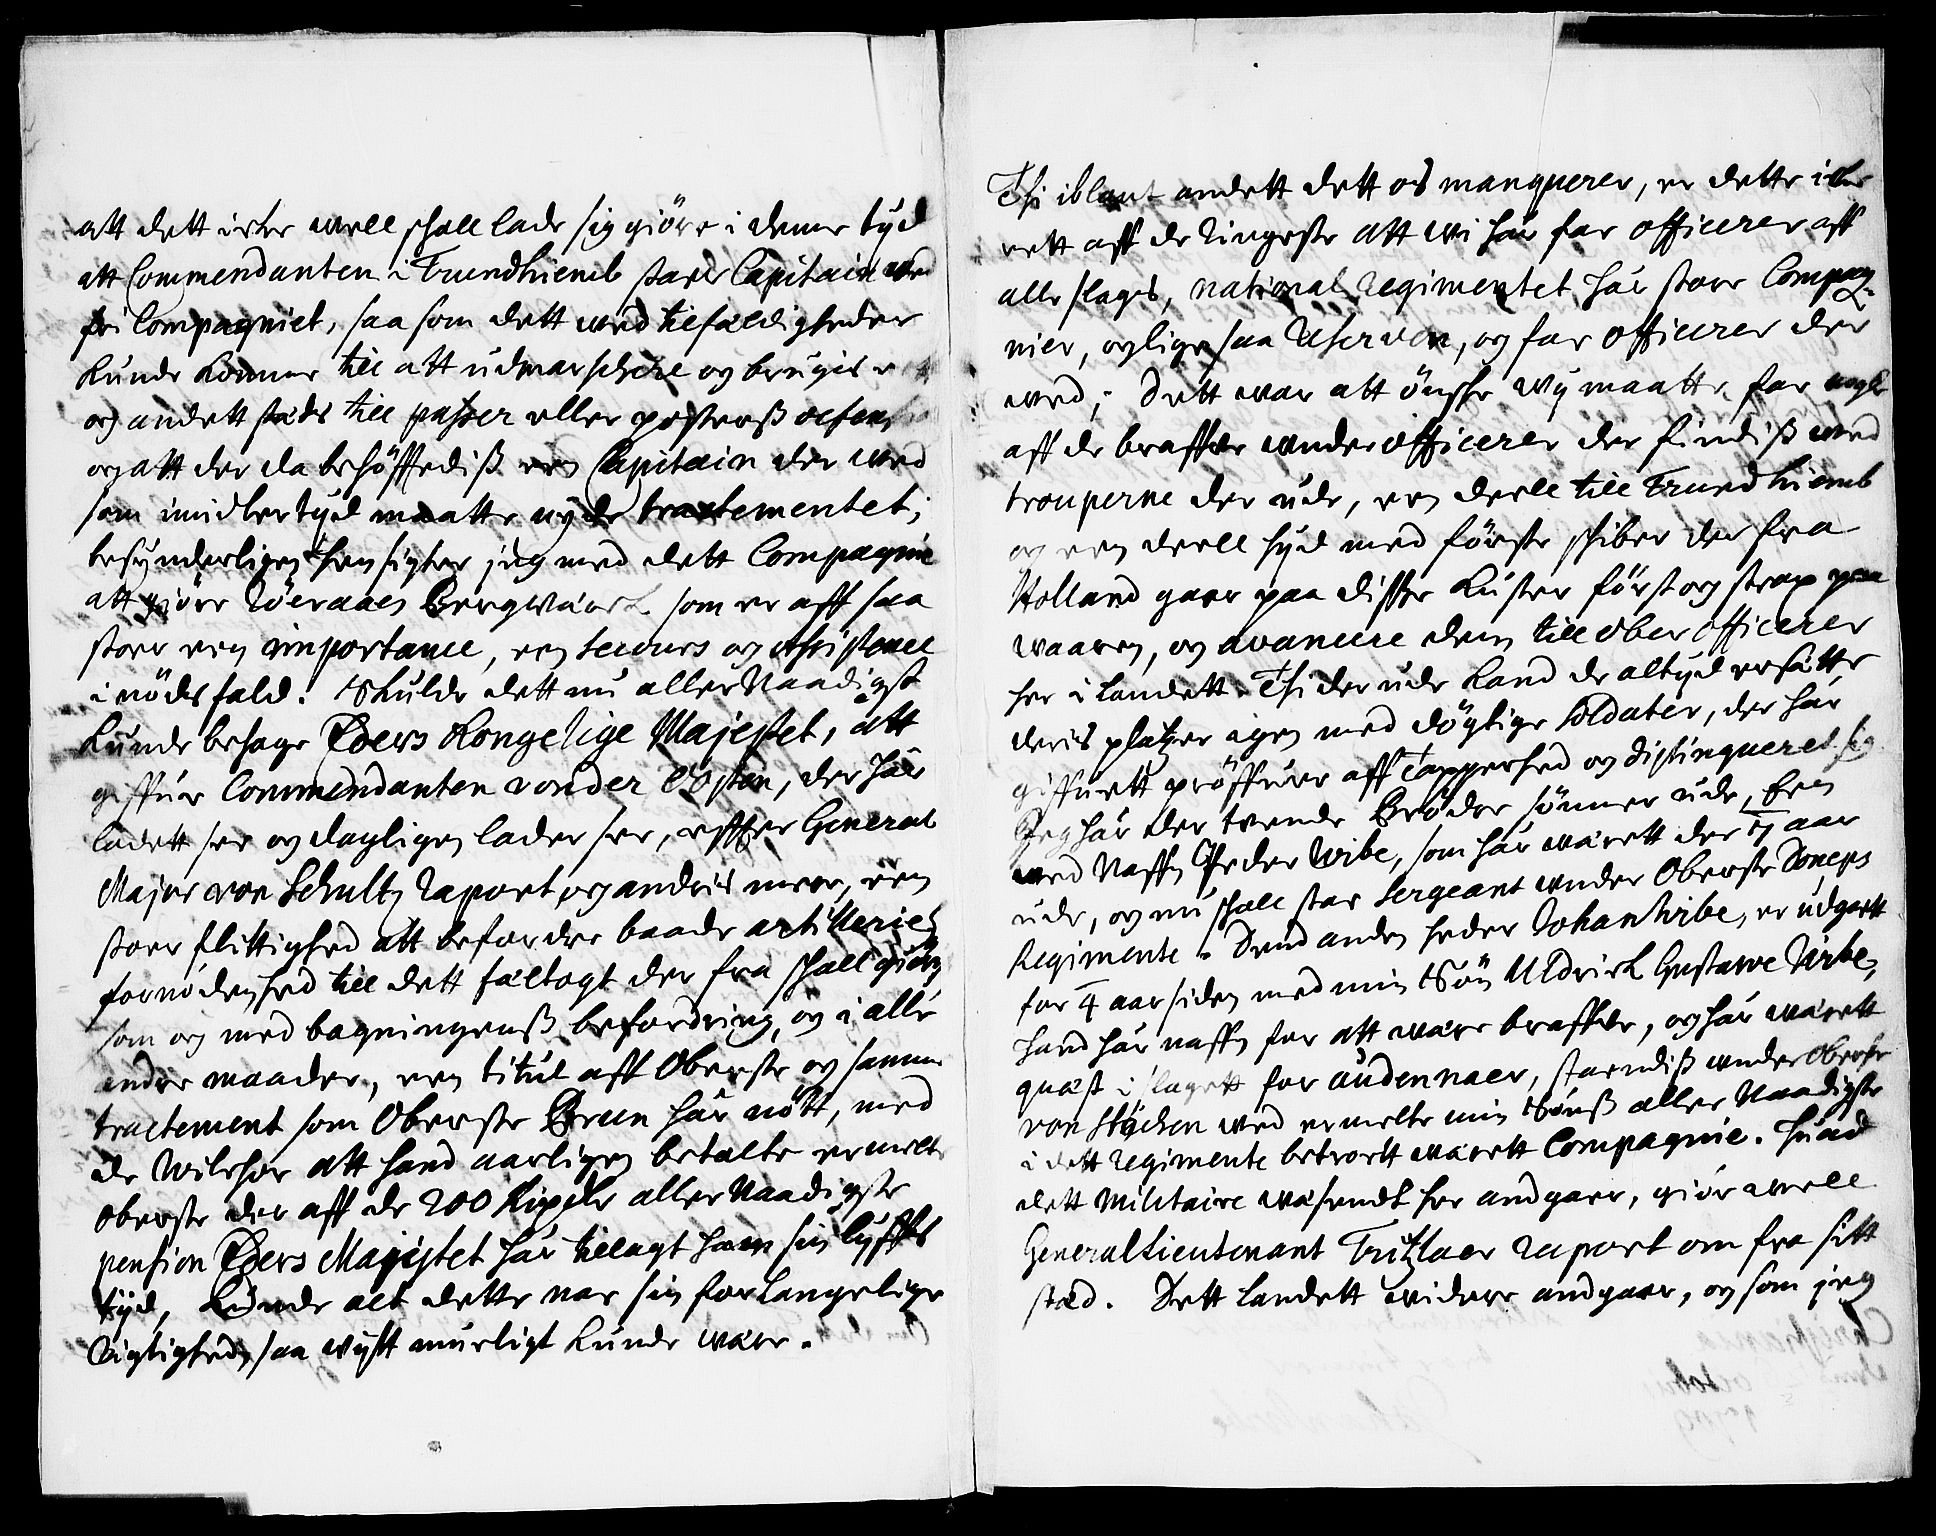 att dett icke well skall lade sig giöre i denne tyd
att Commendanten i Trundhiemb staer Capitain wed
fri Compagniet, saa som dett wed tilfældigheder
kunde komme till att udmarschere og brugis
og andett stæds till passer eller posterß defen
og att der da behöffwediß een Capitain der wed
som imidlertyd maatte nyde tractementet;
besynderligen hensigter jeg med dett Compagnie
att giöre Röeraaes Bergwærk som er aff saa
stoer een importance, een secours og assistance
i nöds fald. Skulde dett nu aller Naadigst
kunde behage Eders Kongelige Majestet, att
giffue Commendanten von der Osten, der har
ladett see og dagligen lader see, effter General
Major von Schultz raport og andris meere, een
stoer flittighed att befordre baade artilleries
fornödenhed till dett feltogt der fra skall giöris
som og med bagningenß befordring, og i alle
andre maader, een titul aff Oberste og samme
tractement som Oberste Brun har nött, med
de wilchor att hand aarligen betalte ermelte
Oberste der aff de 200 Rixdlr aller Naadigste
pension Eders Majestet har tillagt ham sin lyffs
tyd, kunde alt dette naae sin forlangelige
Rigtighed, saa wytt mueligt kunde wære.
Thi iblant andett dett os manquerer, er dette icke
eett aff de Ringeste att wi har faae officerer aff
alle slags, national regimentet har store Compag
nier, og lige saa Reserven, og faae officerer der
wed; Dett war att önske wy maatte faae nogle
aff de braffwe underofficerer der findiß wed
trouperne der ude, een deell till Trundhiemb
og een deell hyd med förste skiber der fra
Holland gaar paa disse kuster först og strax paa
waaren, og avancere dem till ober officerer
her i landett. Thi der ude kand de altyd ersætte
deris platzer igen med dögtige soldater, der har
giffuett pröffuer aff Tapperhed og distingueret sig
Jeg har der twende Bröder sönner ude, Een
wed Naffn Peder Wibe, som har wærett der 7 aar
ude, og nu skall staae Sergeant under Oberste Doneps
Regimente. Dend anden heder Johan Wibe, er udgaett
for 4 aar siden med min Sön Uldrick Gustawe Wibe,
hand har naffn for att wære braffwe, og har wærett
quæst i slagett for Audennaer, staendiß under Oberste
von Stöcken wed ermelte min Sönß aller Naadigste
i dett regimente betroett wærett Compagnie. Huad
dett Militaire wæsendt her andgaer, giör well
General Lieutenant Tritzlaer raport om fra sitt
stæd. Dett landett widere andgaar, og som jeg